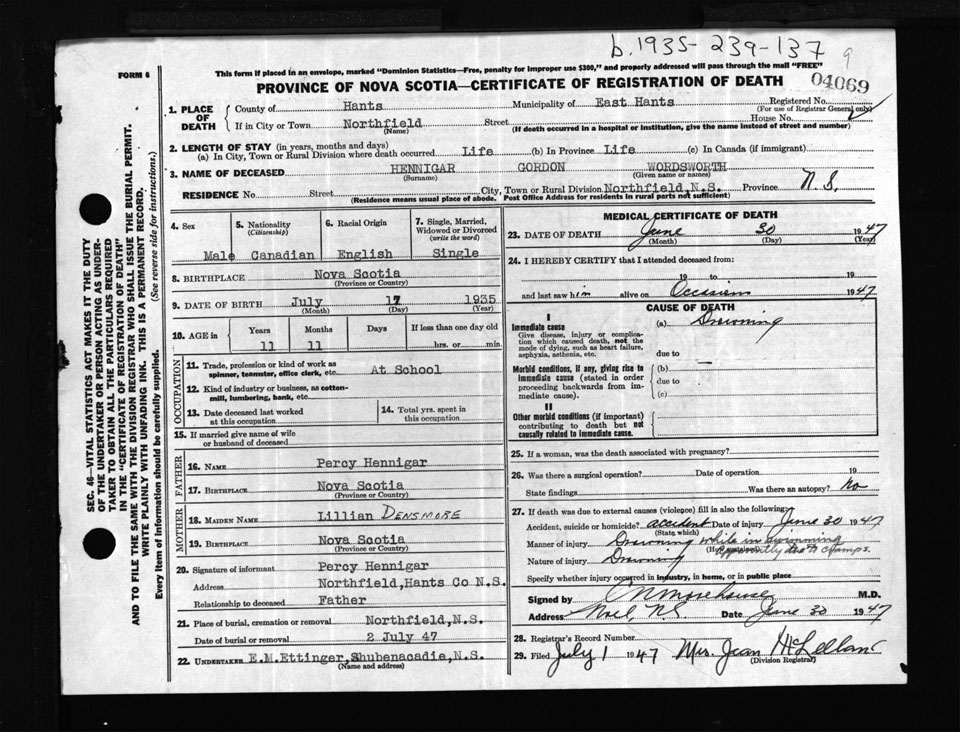 b. 1935-239-137 9
FORM 6
This form if placed in an envelope, marked "Dominion Statistics—Free, penalty for improper use $300," and properly addressed will pass through the mail "FREE"
04069
PROVINCE OF NOVA SCOTIA—CERTIFICATE OF REGISTRATION OF DEATH
1. PLACE OF DEATH
County of Hants Municipality of East Hants Registered No.
(For use of Registrar General only)
If in City or Town Northfield Street House No.
(Name) (If death occurred in a hospital or institution, give the name instead of street and number)
2. LENGTH OF STAY (in years, months and days)
(a) In City, Town or Rural Division where death occurred Life (b) In Province Life (c) In Canada (if immigrant)
3. NAME OF DECEASED HENNIGAR GORDON WORDSWORTH
(Surname) (Given name or names)
RESIDENCE No. Street City, Town or Rural Division Northfield, N.S. Province N.S.
(Residence means usual place of abode. Post Office Address for residents in rural parts not sufficient)
4. Sex 5. Nationality (Citizenship) 6. Racial Origin 7. Single, Married, Widowed or Divorced (write the word)
Male Canadian English Single
8. BIRTHPLACE Nova Scotia
(Province or Country)
9. DATE OF BIRTH July 17 1935
(Month) (Day) (Year)
10. AGE in Years Months Days If less than one day old
11 11 hrs. or min.
OCCUPATION
11. Trade, profession or kind of work as spinner, teamster, office clerk, etc. At School
12. Kind of industry or business, as cotton-mill, lumbering, bank, etc.
13. Date deceased last worked at this occupation
14. Total yrs. spent in this occupation
15. If married give name of wife or husband of deceased
FATHER
16. NAME Percy Hennigar
17. BIRTHPLACE Nova Scotia
(Province or Country)
MOTHER
18. MAIDEN NAME Lillian DENSMORE
19. BIRTHPLACE Nova Scotia
(Province or Country)
20. Signature of informant Percy Hennigar
Address Northfield, Hants Co N.S.
Relationship to deceased Father
21. Place of burial, cremation or removal Northfield, N.S.
Date of burial or removal 2 July 47
22. UNDERTAKER E.M.Ettinger, Shubenacadie, N.S.
(Name and address)
MEDICAL CERTIFICATE OF DEATH
23. DATE OF DEATH June 30 1947
(Month) (Day) (Year)
24. I HEREBY CERTIFY that I attended deceased from:
19 to 19
and last saw him alive on Occasion 1947
CAUSE OF DEATH
I
Immediate cause
Give disease, injury or complication which caused death, not the mode of dying, such as heart failure, asphyxia, asthenia, etc.
(a) Drowning
due to —
Morbid conditions, if any, giving rise to immediate cause (stated in order proceeding backwards from immediate cause).
(b)
due to
(c)
II
Other morbid conditions (if important) contributing to death but not causally related to immediate cause.
25. If a woman, was the death associated with pregnancy?
26. Was there a surgical operation? Date of operation 19
State findings Was there an autopsy? No
27. If death was due to external causes (violence) fill in also the following:
Accident, suicide or homicide? accident Date of injury June 30 1947
(State which)
Manner of injury Drowning while in swimming
apparently due to cramps.
Nature of injury Drowning
Specify whether injury occurred in industry, in home, or in public place
Signed by M.D.
Address Noel, N.S. Date June 30 1947
28. Registrar's Record Number
29. Filed July 1 1947 Mrs. Jean McLellan
(Division Registrar)
SEC. 46—VITAL STATISTICS ACT MAKES IT THE DUTY
OF THE UNDERTAKER OR PERSON ACTING AS UNDER-
TAKER TO OBTAIN ALL THE PARTICULARS REQUIRED
IN THE "CERTIFICATE OF REGISTRATION OF DEATH"
AND TO FILE THE SAME WITH THE DIVISION REGISTRAR WHO SHALL ISSUE THE BURIAL PERMIT.
WRITE PLAINLY WITH UNFADING INK. THIS IS A PERMANENT RECORD.
Every item of information should be carefully supplied. (See reverse side for instructions.)